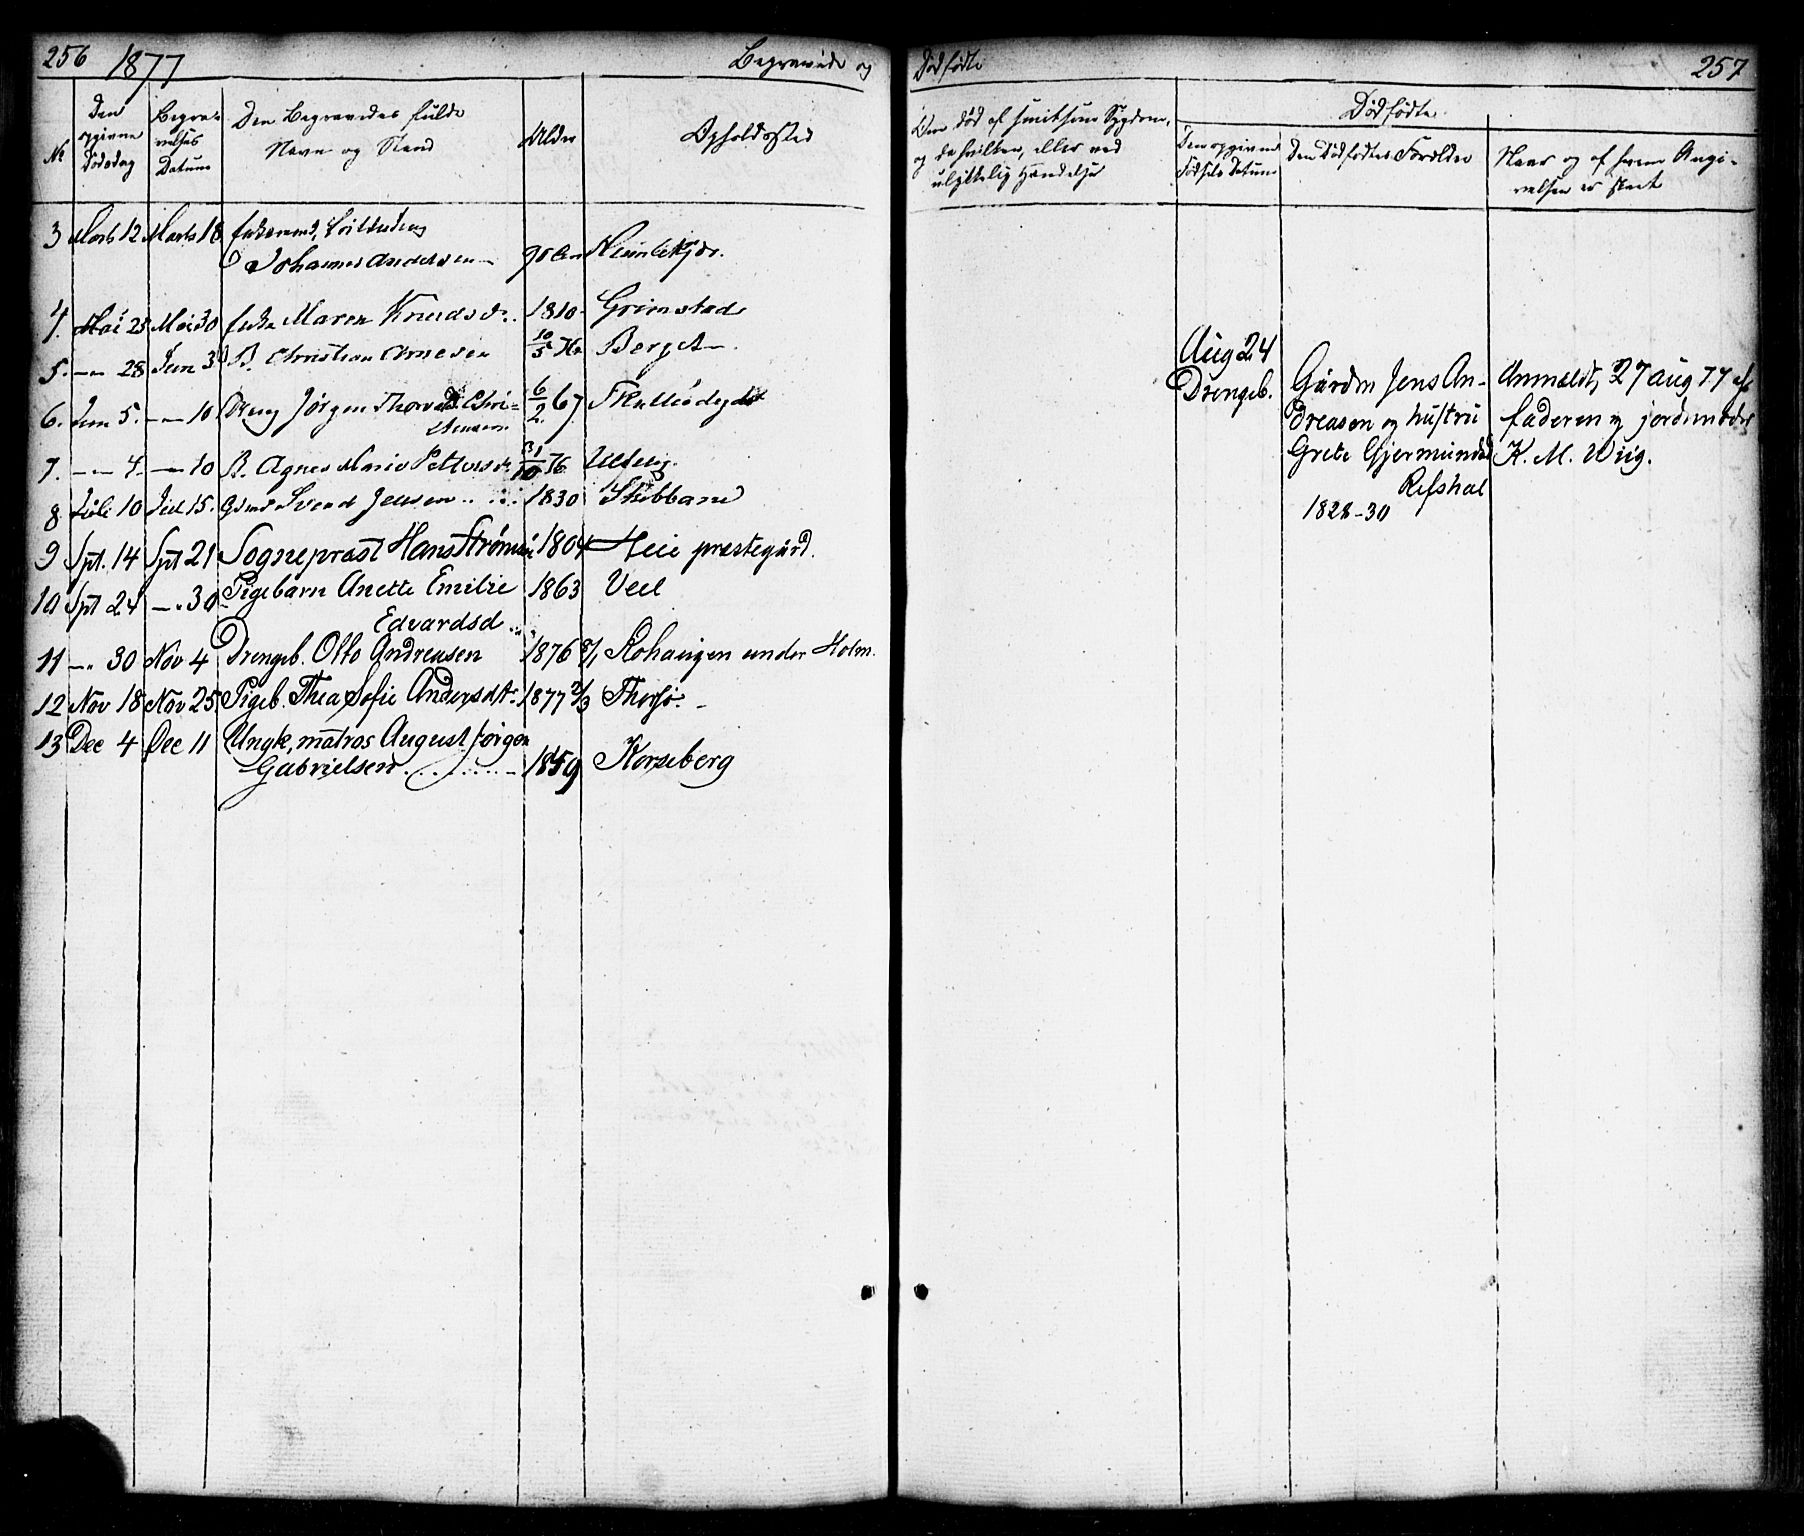 256 1877 Begravede og
Den opgivne Dødsdag
Begravelses Datum
Den Begravedes fulde
Navn og Stand
Alder
Opholdssted
№
3 Marts 12 Marts 18 Enkemand,
Johannes Andersen 90 Aar
4. Mai 25 Mai 30 Enke Maren Knudsd. 1810 Grimstad
5. —"— 28 Jun 3 B. Christian Arnesen 10/5 76 Berget
6. Jun 5. —"— 10 Dreng Jørgen Thorvald Chri-
stensen 6/2 67
7. —"— 4. —"— 10 B. Agnes Marie Pettersd. 31/10 76
8 Juli 10 Jul 15. Gmd Svend Jensen 1830 Skibbane
9 Spt. 14 Spt 21 Sogneprest Hans Strøm 1804 Heie prestegård.
10 Spt 24 —"— 30 Pigebarn Anette Emilie 1863 Veel
Edvardsd
11 —"— 30 Nov 4 Drengeb. Otto Andreasen 1876 under Holm.
12 Nov 18 Nov 25 Pigeb. Thea Sofie Andersdtr 1877 2/3 Thorsø
13 Dec 4 Dec 11 Ungk, matros August Jørgen
Gabrielsen 1859 Korseberg
Dødfødte 257
Om død af smitsom Sygdom,
og da hvilken, eller ved
ulykkelig Hændelse
Dødfødte
Den opgivne
Fødsels Datum
Den Dødfødtes Forældre
Naar og af hvem Angi-
velsen er skeet
Aug 24
Drengeb.
Gårdm Jens An-
dreasen og hustru
Grete Gjermundsd
Refshal
1828-30
Anmeldt, 27 aug 77 af
faderen og jordmoder
K. M. Wiig.